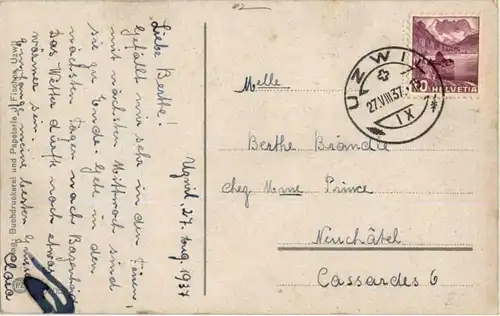 Uzwil, 27. Aug 1937
Liebe Berthe!
Gefällt mir sehr in den Ferien
mit nächsten Mittwoch sind
sie zu Ende. Gehe in den
nächsten Tagen nach
Das Wetter dürfte noch etwas
wärmer sein.
meine besten Grüsse
Clara
Buchdruckerei und Papeterie
UZWIL
27.VIII.37
IX
HELVETIA
Melle
Berthe Brända
chez Mme Prince
Neuchâtel
Cassardes 6